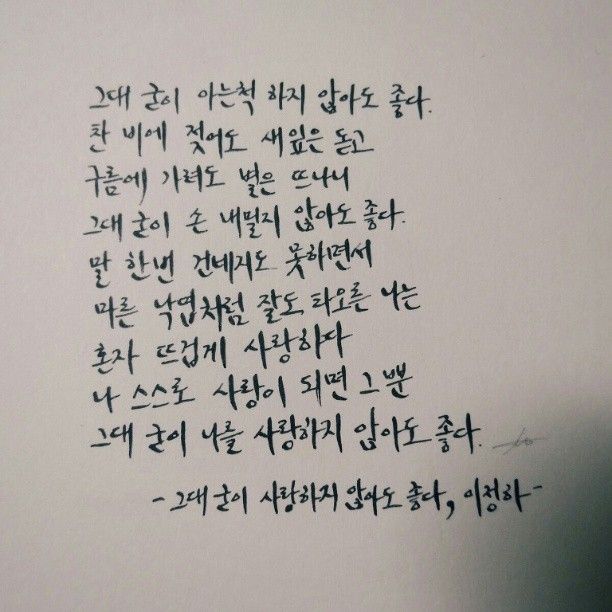 그대 굳이 아는척 하지 않아도 좋다.
찬 비에 젖어도 새잎은 돋고
구름에 가려도 별은 뜨나니
그대 굳이 손 내밀지 않아도 좋다.
말 한번 건네지도 못하면서
마른 낙엽처럼 잘도 타오른 나는
혼자 뜨겁게 사랑하다
나 스스로 사랑이 되면 그뿐
그대 굳이 나를 사랑하지 않아도 좋다.
- 그대 굳이 사랑하지 않아도 좋다, 이정하 -